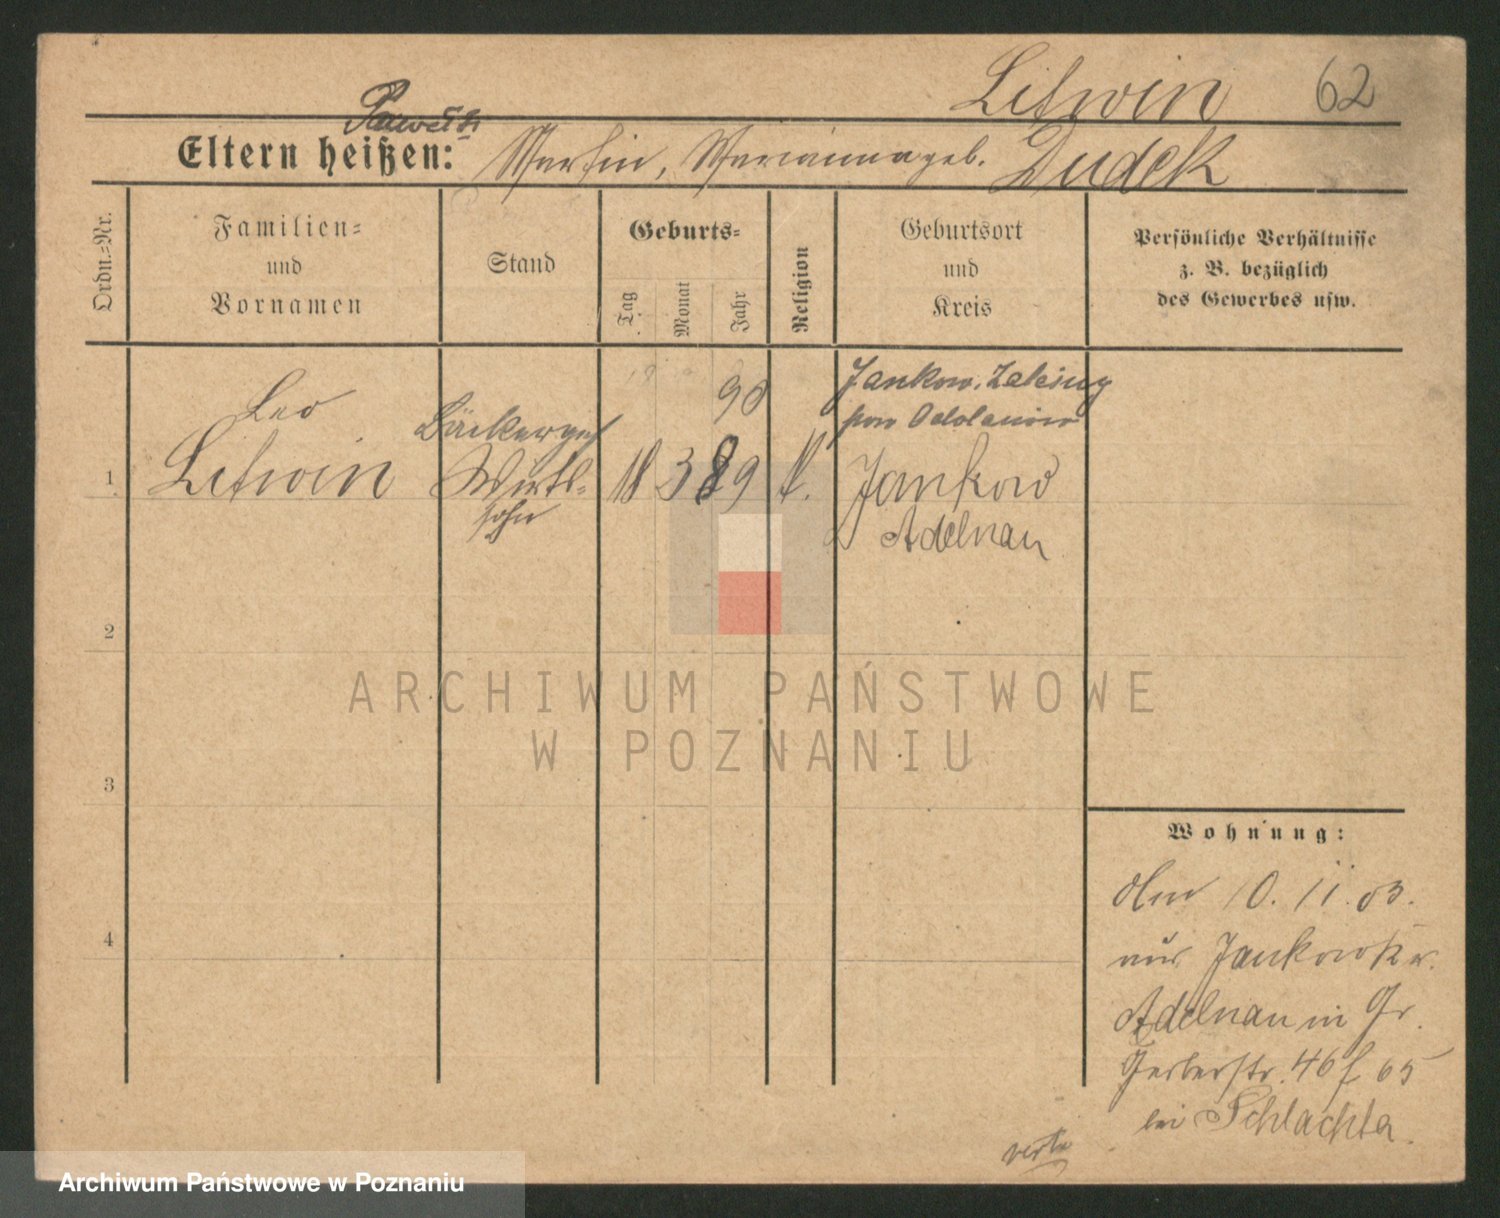 Litwin 62
Eltern heißen: Martin, Marianna geb. Dudek
Ordn.-Nr.
Familien-
und
Vornamen
Stand
Geburts-
Tag
Monat
Jahr
Religion
Geburtsort
und
Kreis
Persönliche Verhältnisse
z. B. bezüglich
des Gewerbes usw.
90
Jankow. Zalesny
pow Odolanów
Leo
Bäckerges
1 Litwin Wirts- 18 3 89 k. Jankow
sohn Adelnau
2
3
4
Wohnung:
10. 11. 03.
aus Jankow Kr.
Adelnau in Gr.
Gerberstr. 46 f 65
bei Schlachta.
verte
ARCHIWUM PAŃSTWOWE
W POZNANIU
Archiwum Państwowe w Poznaniu